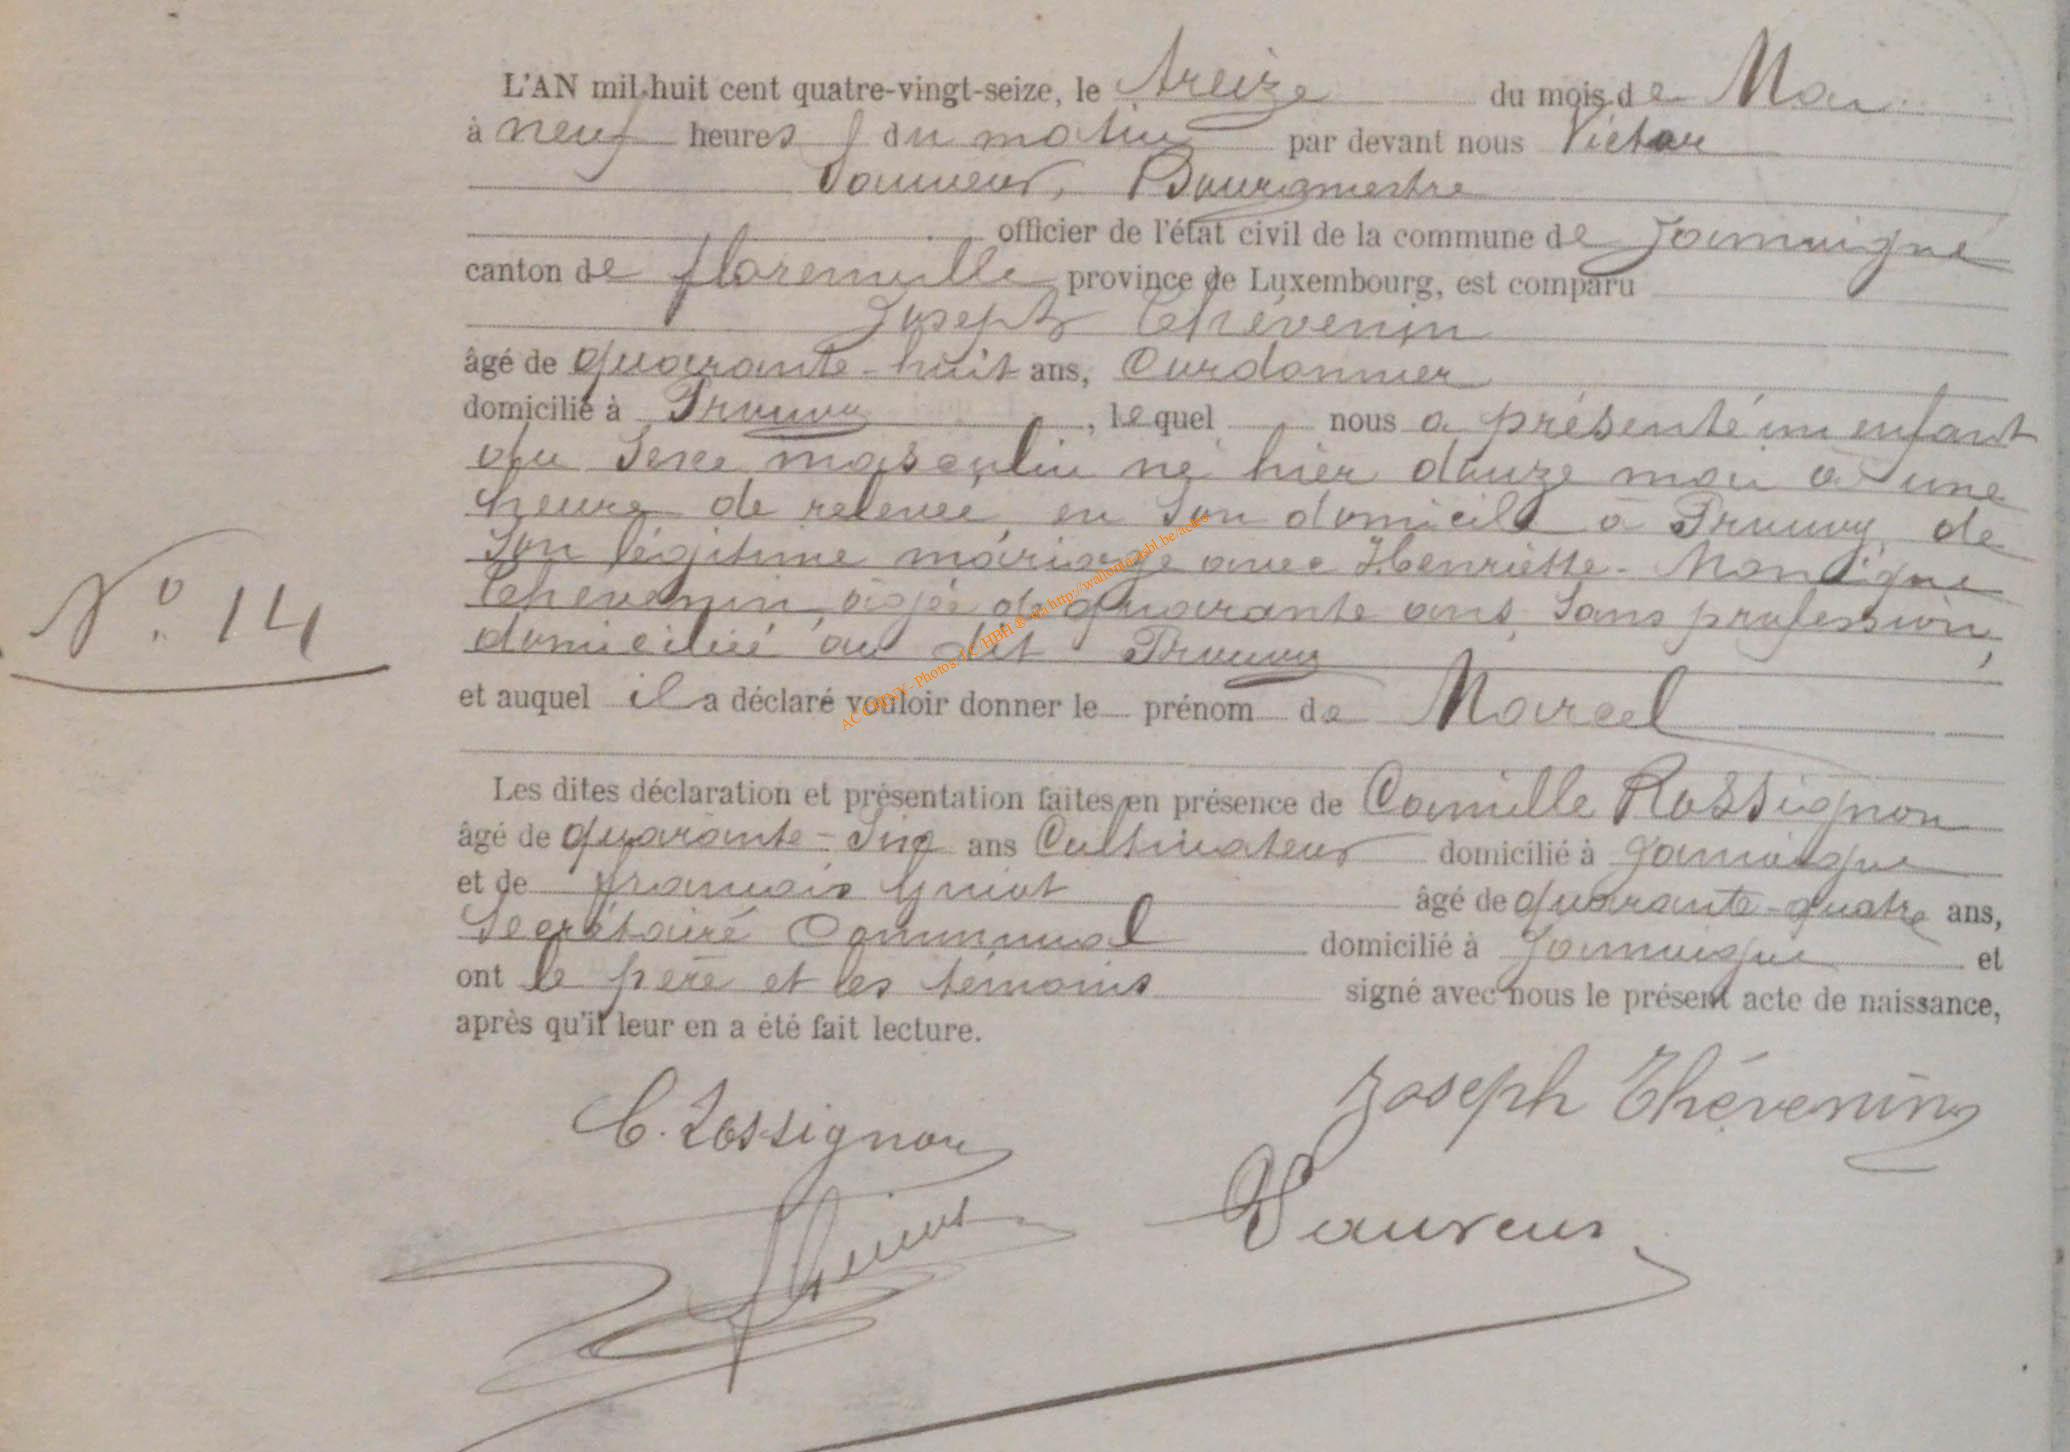 L'AN mil huit cent quatre-vingt-seize, le treize du mois de Mai
à neuf heures du matin par devant nous Victor
Sauveur, Bourgmestre
officier de l'état civil de la commune de Jamoigne
canton de florenville province de Luxembourg, est comparu
Joseph Thévenin
âgé de quarante-huit ans, Cordonnier
domicilié à Prouvy, lequel nous a présenté un enfant
du Sexe masculin né hier douze mai à une
heure de relevée, en Son domicile à Prouvy, de
Son légitime mariage avec Henriette-
Thévenin, âgée de quarante ans, Sans profession,
domiciliée au dit Prouvy
et auquel il a déclaré vouloir donner le prénom de Marcel
Les dites déclaration et présentation faites en présence de Camille Rossignon
N° 14
âgé de quarante-Sinq ans Cultivateur domicilié à Jamoigne
et de françois Guiot âgé de quarante-quatre ans,
Secrétaire Communal domicilié à Jamoigne et
ont le père et les témoins signé avec nous le présent acte de naissance,
après qu'il leur en a été fait lecture.
C. Rossignon
Joseph Thévenin
Guiot
V Sauveur